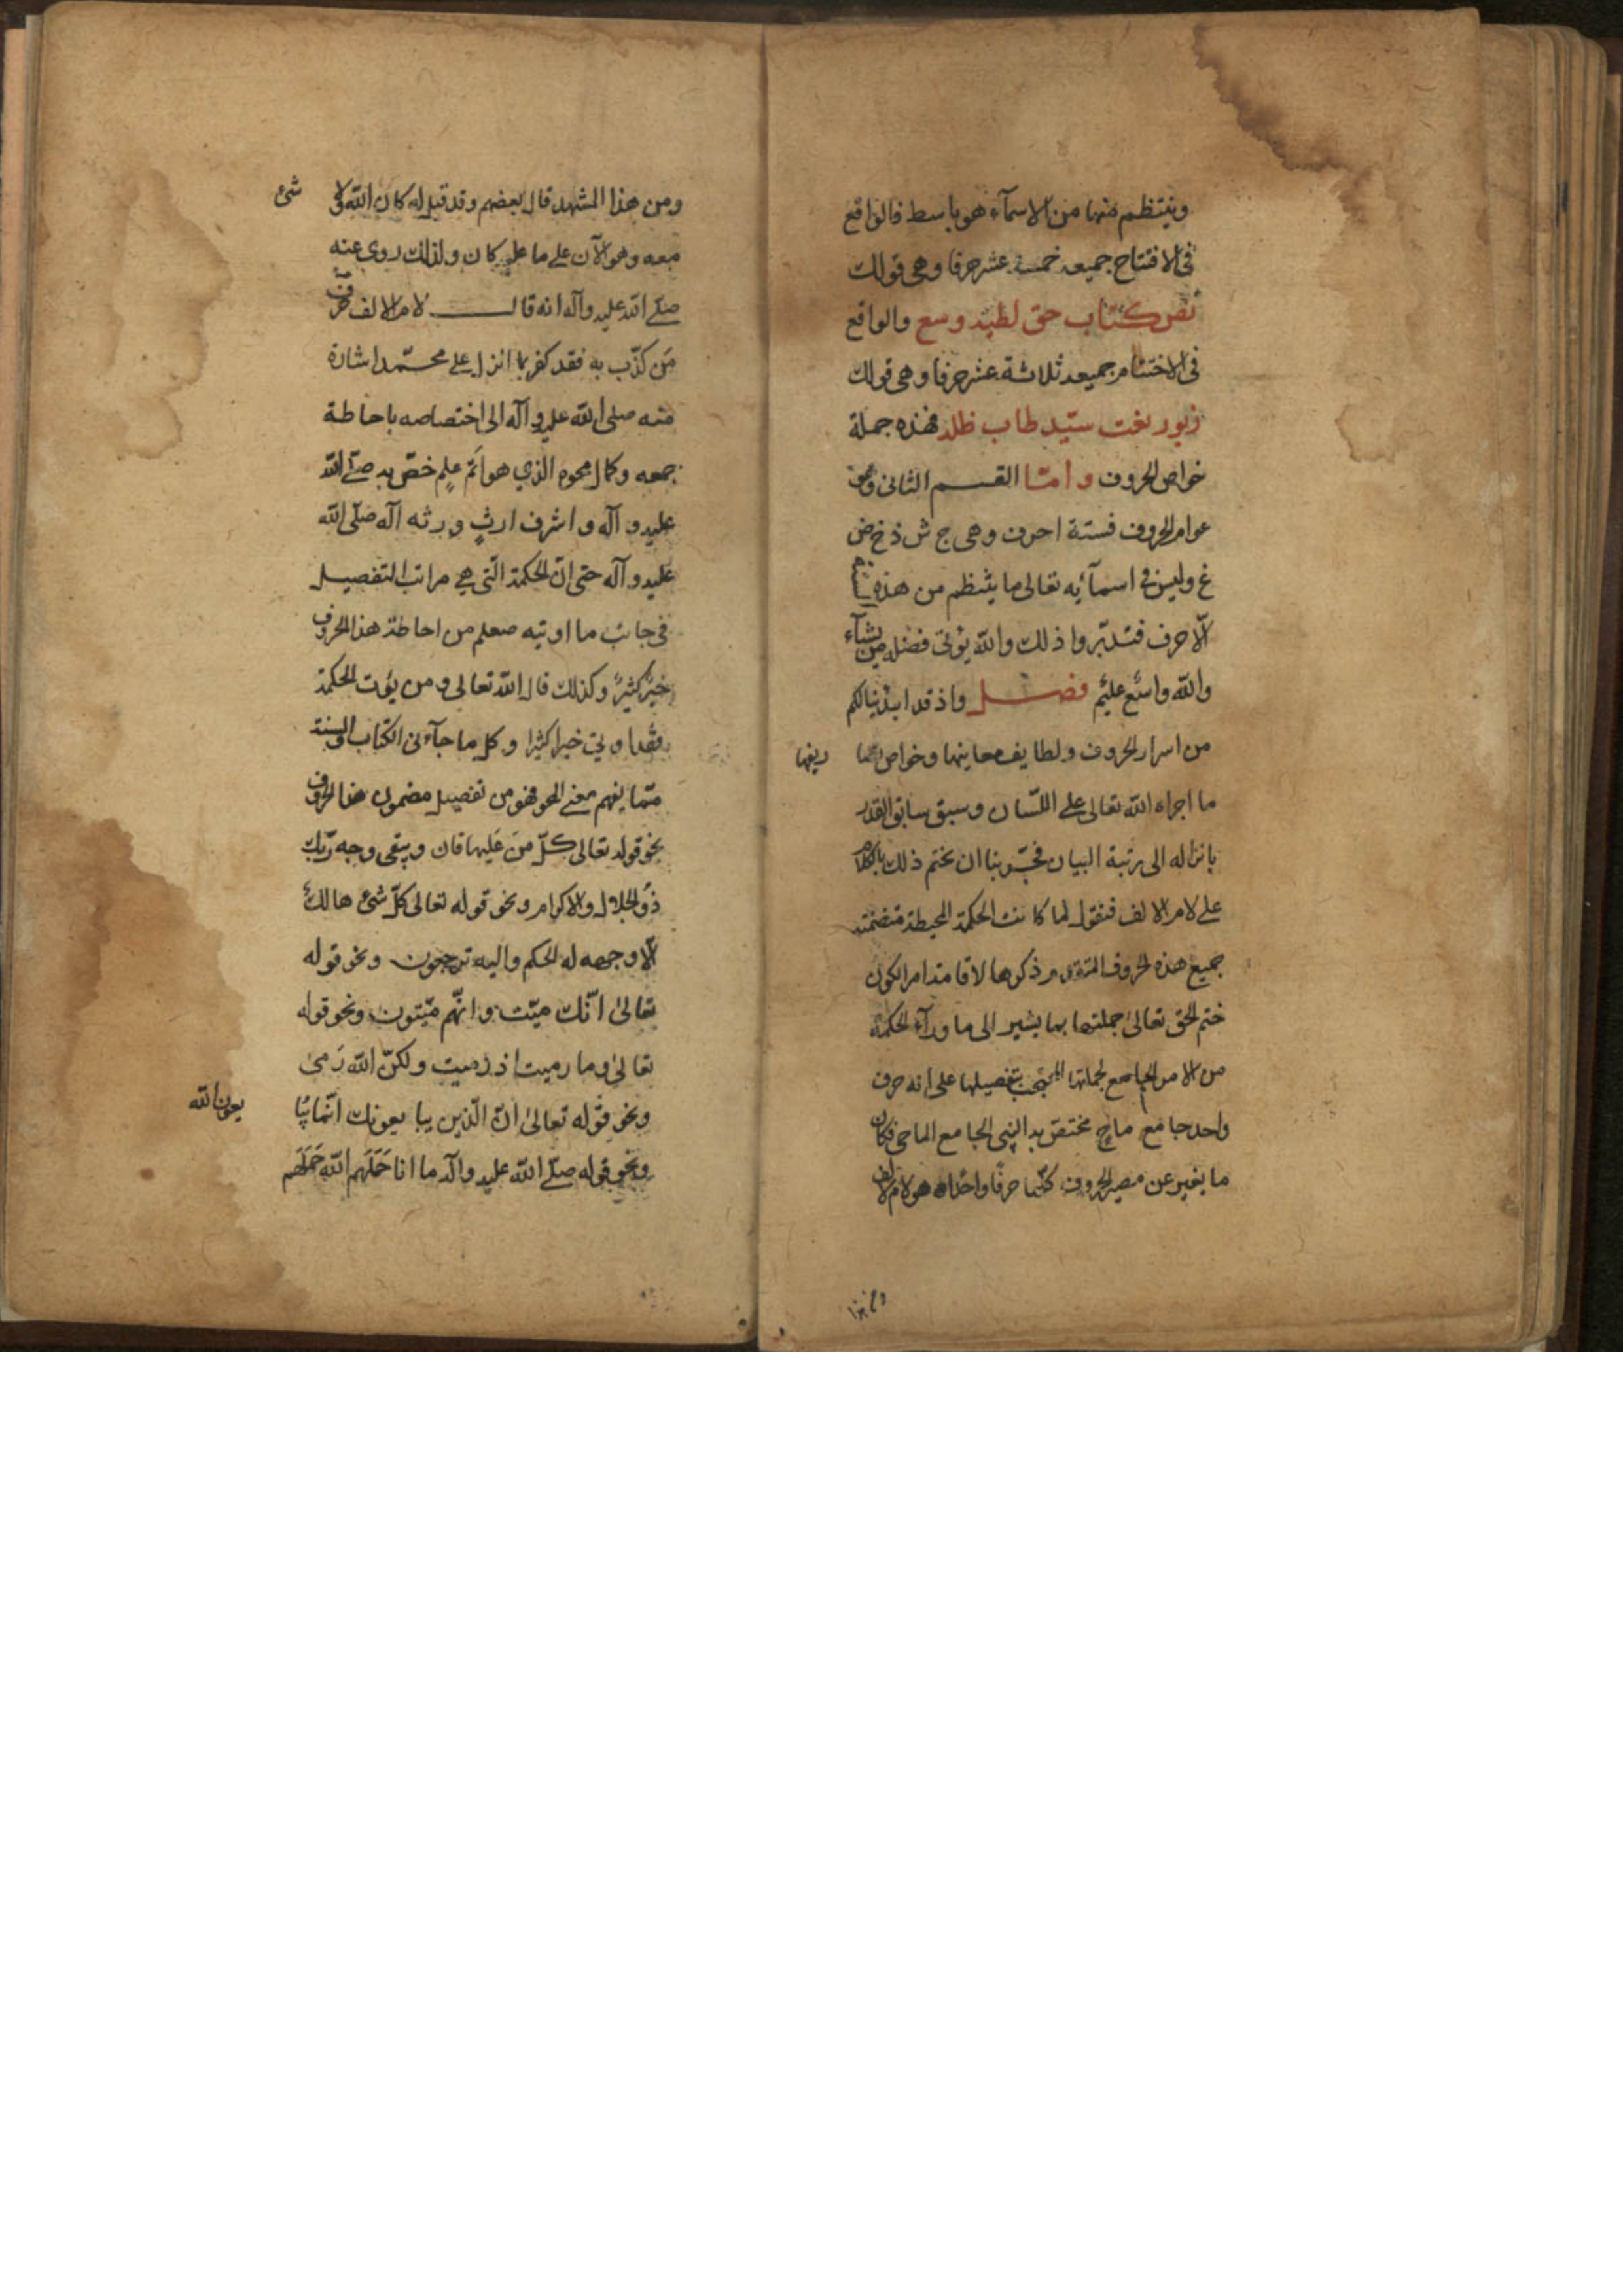 وينتظم منها من الاسمآء هو باسط فالواقع
فى الافتتاح جميعه خمسة عشر حرفا وهى قولك
نص كتاب حق لطيه وسع والواقع
فى الاختتام جميعه ثلاثة عشر حرفا وهى قولك
زبور بغت سيّد طاب ظله فهذه جملة
خواص الحروف وامّا القسم الثانى وهو
عوام الحروف فستة احرف وهى ج ش ذ خ ض
غ وليس فى اسمآئه تعالى ما ينتظم من هذه
الّا حرف فتدبّروا ذلك والله يؤتى فضله من يشآء
والله واسع عليم فصل واذ قد ابدينا لكم
من اسرار الحروف ولطايف معاينها وخواص
ما اجراه الله تعالى على اللسان وسبق سابق القدر
بانزاله الى رتبة البيان بنا ان نختم ذلك بالكلام
على لام الالف فنقول لما كانت الحكمة المحيطة متضمنة
جميع هذه الحروف ذكرها لاقامتها امر الكون
ختم الحق تعالى جملتها بما يشير الى ما ورآء الحكمة
من الامر الجامع لجملتها بتفصيلها على انه حرف
واحد جامع ماح مختص به النبى الجامع الماحى فكان
ما يغير عن مصير الحروف كلّها حرفا واحدا هو لام الف
ومن هذا المشهد قال بعضهم وقد قيل له كان الله ولا شئ
معه وهو الآن على ما عليه كان ولذلك روى عنه
صلّى الله عليه وآله انه قال لام الالف حرف
مَن كذّب به فقد كفر بما انزل على محمّد اشارة
منه صلى الله عليه وآله الى اختصاصه باحاطة
جمعه وكمال محوه الذي هو اَتمّ علمٍ خصّ به صلّى الله
عليه وآله واشرف ارثٍ ورثه آله صلّى الله
عليه وآله حتى انّ الحكمة الّتى هى مراتب التفصيل
فى جانب ما اوتيه من احاطة هذا الحروف
خيرٌ كثيرٌ وكذلك قال الله تعالى ومن يؤت الحكمة
فقد اوتى خيرا كثيرا وكل ما جآء فى الكتاب والسنة
ممّا يفهم معنى المحو فهو من تفصيل مضمون هذا الحروف
نحو قوله تعالى كلّ مَن عَليها فان ويبقى وجه ربّك
ذُو الجلال والاكرام ونحو قوله تعالى كلّ شئ هالكٌ
الّا وجهه له الحكم واليه ترجعون ونحو قوله
تعالىٰ انّك ميّت وانّهم ميّتون ونحو قوله
تعالىٰ وما رميت اذ رميت ولكنّ الله رَمىٰ
ونحو قوله تعالىٰ انّ الّذين يبايعونك انّما يبايعون الله
ونحو قوله صلّى الله عليه وآله ما انا حَمَلَهم الله حَمَلَهُم